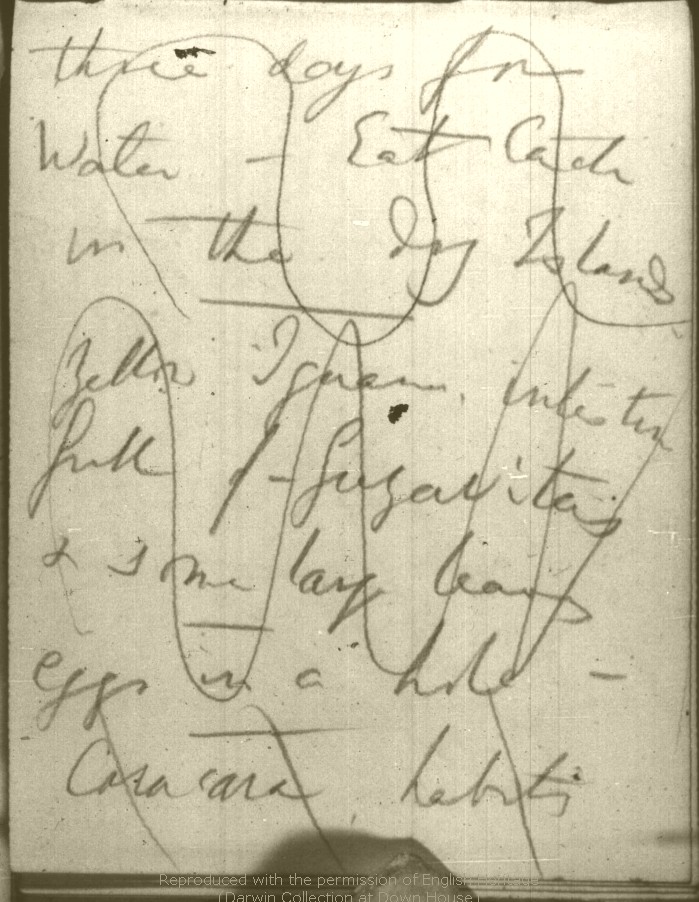 three days for
Water - Eat Cacti
in the dry Islands
Yellow Iguana, intestin
full of Guyavitas
& some large leaves
eggs in a hole -
Caracara, habits
Reproduced with the permission of English Heritage
(Darwin Collection at Down House)